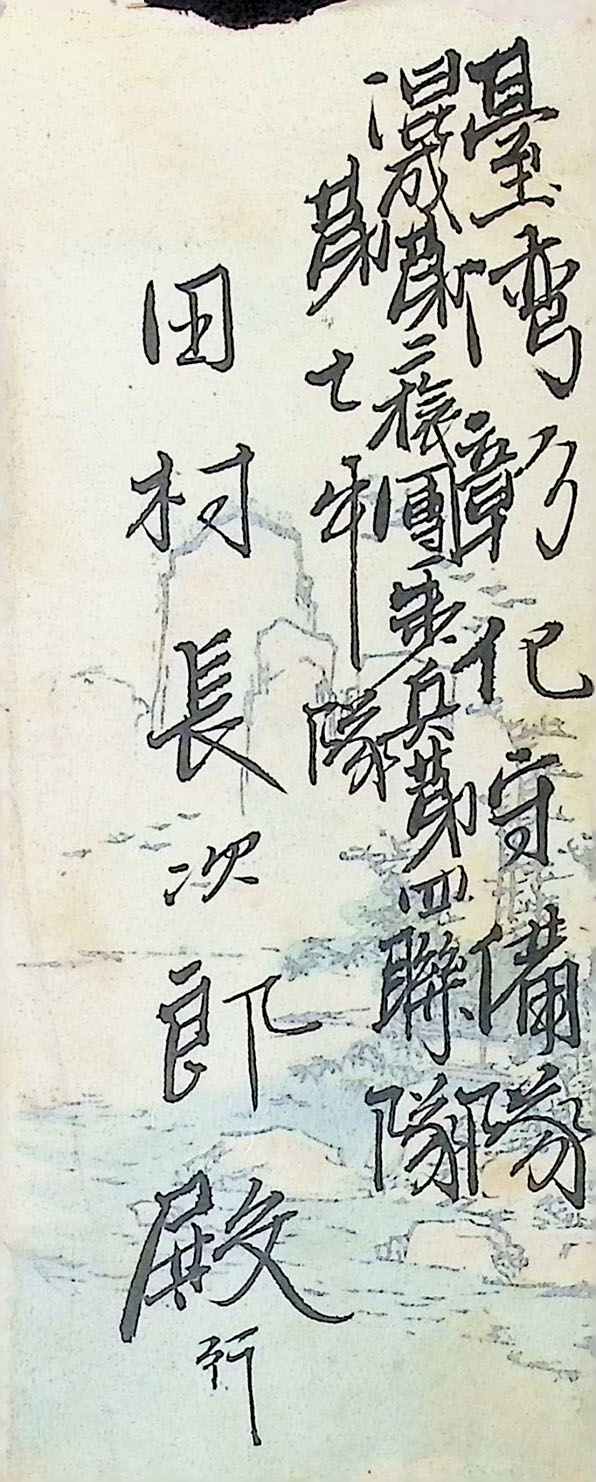 臺弯彰化守備隊
混成第二旅團歩兵第四聯隊
第七中隊
田村長次郎殿行